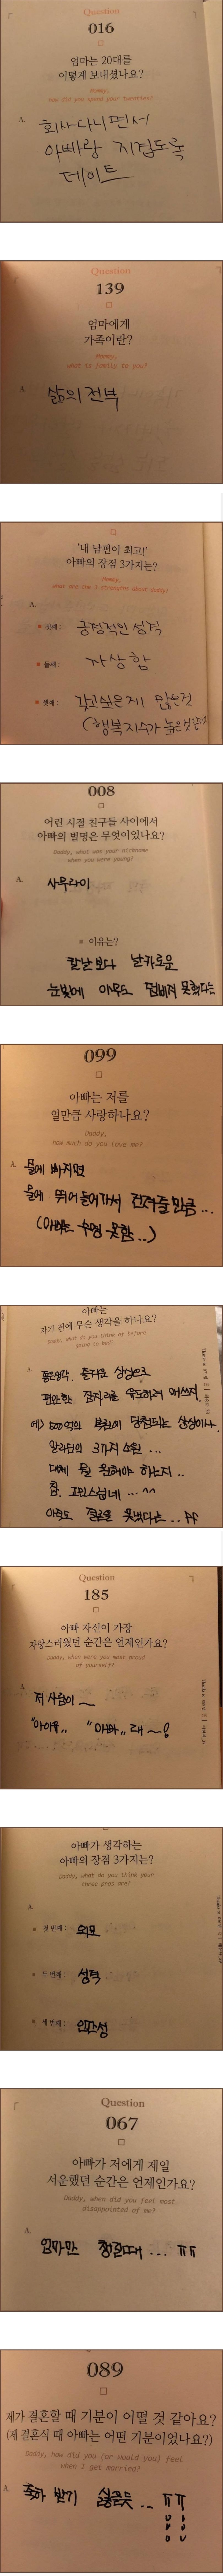 Question
016
엄마는 20대를
어떻게 보내셨나요?
Mommy,
how did you spend your twenties?
A.
회사다니면서
아빠랑 지겹도록
데이트
Question
139
엄마에게
가족이란?
Mommy,
what is family to you?
A
삶의 전부
'내 남편이 최고!'
아빠의 장점 3가지는?
Mommy,
what are the 3 strengths about daddy?
A.
첫째 : 긍정적인 성격
둘째 : 자상함
셋째 : 갖고싶은게 많은것
(행복지수가 높은것같아)
008
어린 시절 친구들 사이에서
아빠의 별명은 무엇이었나요?
Daddy, what was your nickname
when you were young?
A.
사무라이
이유는?
칼날보다 날카로운
눈빛에 아무도 덤비지 못했다는
099
아빠는 저를
얼만큼 사랑하나요?
Daddy,
how much do you love me?
A.
물에 빠지면
물에 뛰어들어가서 건져줄만큼...
(아빠는 수영 못함..)
아빠는
자기 전에 무슨 생각을 하나요?
Daddy, what do you think of before
going to bed?
A.
즐거운 상상으로
편안한 잠자리를 유도하려 애쓰지
예) 500억의 복권에 당첨되는 상상이나.
알라딘의 3가지 소원 ...
대체 뭘 원해야 하는지..
참. 고민스럽네... ^^
아직도 결론을 못냈다는... ㅠㅠ
Question
185
아빠 자신이 가장
자랑스러웠던 순간은 언제인가요?
Daddy, when were you most proud
of yourself?
A.
저 사람이 ~
"아이유,, "아빠,, 래 ~!
아빠가 생각하는
아빠의 장점 3가지는?
Daddy, what do you think your
three pros are?
A.
첫 번째 : 외모
두 번째 : 성격
세 번째 : 인간성
Question
067
아빠가 저에게 제일
서운했던 순간은 언제인가요?
Daddy, when did you feel most
disappointed of me?
A.
엄마만 챙길때... ㅠㅠ
089
제가 결혼할 때 기분이 어떨 것 같아요?
(제 결혼식 때 아빠는 어떤 기분이었나요?)
Daddy, how did you (or would you) feel
when I get married?
A.
축하 받기 싫을듯... ㅠㅠ